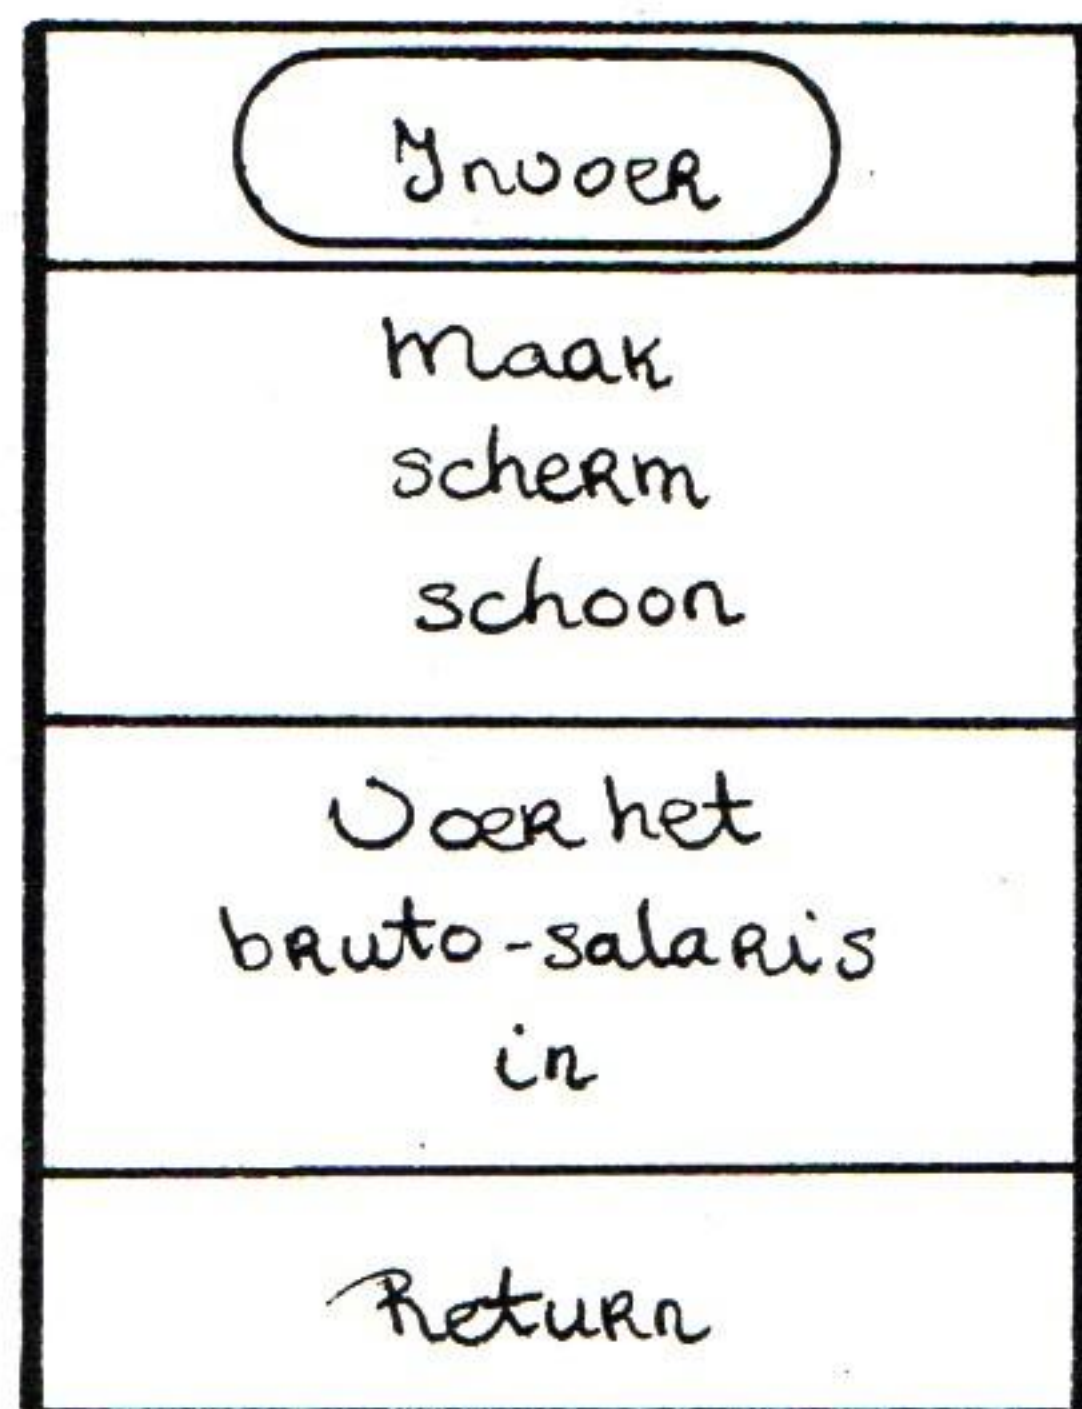 Invoer
Maak
scherm
schoon
Voer het
bruto-salaris
in
Return